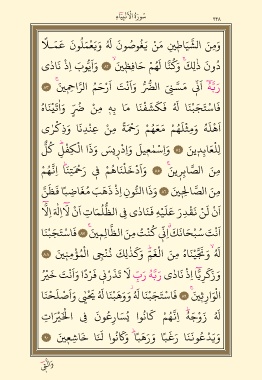 سُورَةُ الْأَنْبِيَاءِ ٣٢٨
وَمِنَ الشَّيَاطِينِ مَنْ يَغُوصُونَ لَهُ وَيَعْمَلُونَ عَمَلًا
دُونَ ذٰلِكَ وَكُنَّا لَهُمْ حَافِظِينَ ﴿٨٢﴾ وَأَيُّوبَ إِذْ نَادٰى
رَبَّهُ أَنِّي مَسَّنِيَ الضُّرُّ وَأَنْتَ أَرْحَمُ الرَّاحِمِينَ ﴿٨٣﴾
فَاسْتَجَبْنَا لَهُ فَكَشَفْنَا مَا بِهِ مِنْ ضُرٍّ وَأٰتَيْنَاهُ
أَهْلَهُ وَمِثْلَهُمْ مَعَهُمْ رَحْمَةً مِنْ عِنْدِنَا وَذِكْرٰى
لِلْعَابِدِينَ ﴿٨٤﴾ وَإِسْمٰعِيلَ وَإِدْرِيسَ وَذَا الْكِفْلِ كُلٌّ
مِنَ الصَّابِرِينَ ﴿٨٥﴾ وَأَدْخَلْنَاهُمْ فِي رَحْمَتِنَا إِنَّهُمْ
مِنَ الصَّالِحِينَ ﴿٨٦﴾ وَذَا النُّونِ إِذْ ذَهَبَ مُغَاضِبًا فَظَنَّ
أَنْ لَنْ نَقْدِرَ عَلَيْهِ فَنَادٰى فِي الظُّلُمَاتِ أَنْ لَا إِلٰهَ إِلَّا
أَنْتَ سُبْحَانَكَ إِنِّي كُنْتُ مِنَ الظَّالِمِينَ ﴿٨٧﴾ فَاسْتَجَبْنَا
لَهُ وَنَجَّيْنَاهُ مِنَ الْغَمِّ وَكَذٰلِكَ نُنْجِي الْمُؤْمِنِينَ ﴿٨٨﴾
وَزَكَرِيَّا إِذْ نَادٰى رَبَّهُ رَبِّ لَا تَذَرْنِي فَرْدًا وَأَنْتَ خَيْرُ
الْوَارِثِينَ ﴿٨٩﴾ فَاسْتَجَبْنَا لَهُ وَوَهَبْنَا لَهُ يَحْيٰى وَأَصْلَحْنَا
لَهُ زَوْجَهُ إِنَّهُمْ كَانُوا يُسَارِعُونَ فِي الْخَيْرَاتِ
وَيَدْعُونَنَا رَغَبًا وَرَهَبًا وَكَانُوا لَنَا خَاشِعِينَ ﴿٩٠﴾
وَالَّتِي